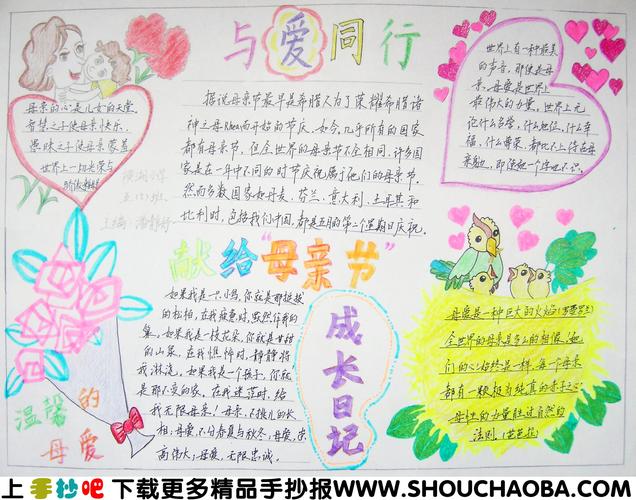 与爱同行
母亲的心是儿女的天堂
智慧之子使母亲快乐,
愚昧之子使母亲蒙羞
世界上一切光荣与
骄傲
据说母亲节最早是希腊人为了荣耀希腊诸
神之母Rhea而开始的节庆。如今,几乎所有的国家
都有母亲节,但全世界的母亲节不全相同,许多国
家是在一年中不同的时节庆祝属于他们的母亲节,
然而多数国家如丹麦、芬兰、意大利、土耳其和
比利时,包括我们中国,都是五月的第二个星期日庆祝。
世界上有一种最美
的声音,那便是母
亲。母爱是世界上
最伟大的力量。世界上无
论什么名誉,什么地位,什么幸
福,什么尊荣,都比不上待在母
亲
献给“母亲节”
如果我是一只小鸟,你就是那挺拔
的松柏,在我疲惫时,默然作我的
巢。如果我是一枝花朵,你就是
的山泉,在我
我淋浇。如果我是一个孩子,你就
是那不变的家。在我迷茫时,给
我无限母亲!母亲,不挂儿的
相,母爱,不分春夏与秋冬,母爱,崇
高伟大;母爱,无限忠诚。
成长日记
母爱是一种巨大的火焰(罗曼罗兰)
全世界的母亲是多么的相像!她
们的心始终是一样,每一个母亲
都有一颗极为纯真的赤子之心
母性的力量胜过自然的
法则(芭芭拉)
温馨的
母爱
上手抄吧 下载更多精品手抄报WWW.SHOUCHAOBA.COM